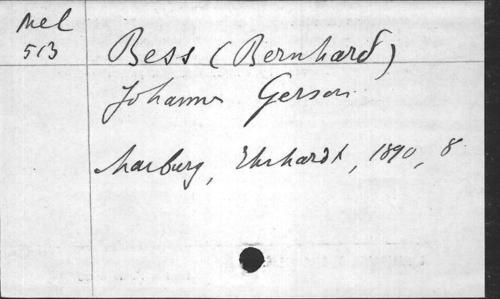 Mel
513
Bess (Bernhard)
Johannes Gerson
Marburg, Ehrhardt, 1890, 8